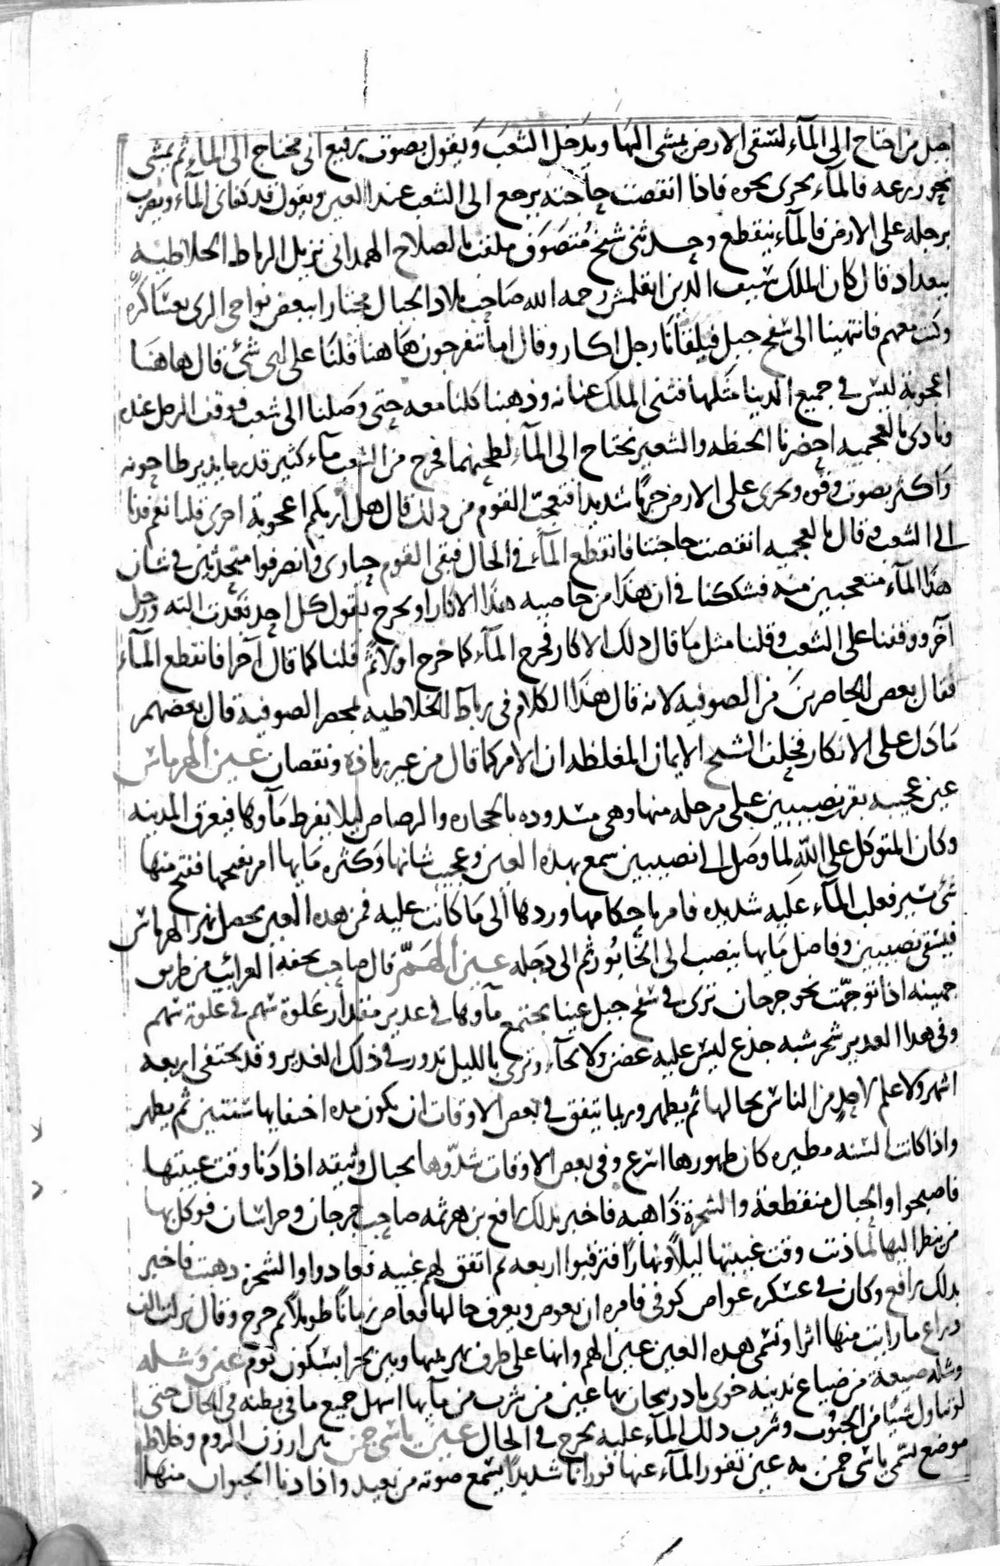 جبل من احتاج الى المآء لتسقى الارض يمشى اليها ويدخل الشعب ويقول بصوت رفيع انى محتاج الى الماء ثم يمشى
نحو زرعه فالمآء يجرى نحوه فاذا انقضت حاجته يرجع الى الشعب عند العين ويقول قد كفانى المآء ويضرب
برجله على الارض فالمآء ينقطع وحدثنى شيخ متصوف ملقب بالصلاح الهمدانى نزيل الرباط الخلاطيه
ببغداد قال كان الملك شيف الدين ايغلمش رحمه الله صاحب بلاد الجبال مجتازا ببعض نواحى الرى بعشاكره
وكنت معهم فانتهينا الى سفح جبل فيلقانا رجل اكار وقال اما تتفرجون هاهنا قلنا على اى شئ قال هاهنا
اعجوبة ليس فى جميع الدينا مثلها فثنى الملك عنانه وذهبنا كلنا معه حتى وصلنا الى شعب فوقف الرجل عنده
ونادى بالعجميه احضرنا الحنطه والشعير نحتاج الى المآء لطحنهما فخرج من الشعب مآء كثير قدر ما يدير طاحونه
واكثر بصوت وقوه وجرى على الارض جريا شديدا فتعجب القوم من ذلك قال هل اريكم اعجوبة اخرى قلنا نعم فدنا
الى الشعب وقال بالعجميه انقضت حاجتنا فانقطع المآء فى الحال فبقى القوم حيارى وانصرفوا متحدثين فى شان
هذا المآء متعجبين منه فشككنا فى ان هذا من خاصيه هذا الاكار او يخرج بقول كل احد فعدت اليه ورجل
آخر ووقفنا على الشعب وقلنا مثل ما قال ذلك الاكار فخرج المآء كما خرج اولا ثم قلنا كما قال آخرا فانقطع المآء
فقال بعض الحاضرين من الصوفيه لانه قال هذا الكلام فى رباط الخلاطيه بمحضر الصوفية قال بعضهم
ما دل على الانكار فحلف الشيخ الايمان المغلظه ان الامر كما قال من غير زيادة ونقصان عين الهرماس
عين عجيبه بقرب نصيبين على مرحله منها وهى مشدوده بالحجاره والرصاص ليلا يفرط مآوها فيغرق المدينه
وكان المتوكل على الله لما وصل الى نصيبين سمع بهذه العين وعجيب شانها وكثره مايها امر بفتحها ففتح منها
شئ يسير فغلب المآء غلبه شديده فامر باحكامها وردها الى ما كانت عليه فمن هذه العين يحصل نهر الهرماس
فيسقى نصيبين وفاضل مايها ينصب الى الخابور ثم الى دجله عين الهم قال صاحب تحفه الغرائب من طريق
جهينه اذا توجهت نحو جرجان ترى فى سفح جبل عينا يجتمع مآوها فى غدير مقدار غلوة سهم فى غلوة سهم
وفى هذا الغدير شجر شبه جذع ليس عليه غصن ولا لحآء وترى بالليل تدور فى ذلك الغدير وقد تختفى اربعه
اشهر ولا علم لاحد من الناس بحالها ثم يظهر وربما يتفق فى بعض الاوقات ان يكون مده اختفايها سنتين ثم يظهر
واذا كانت السنه مطيره كان ظهورها اسرع وفى بعض الاوقات شدوها بحبال وثيقه اذا دنا وقت غيبتها
فاصبحوا والحبال منقطعة والشجرة ذاهبه فاخبر بذلك رافع بن هرثمه صاحب جرجان وخراسان فوكل بها
من ينظر اليها لما ذنت وقت غيبتها ليلا ونهارا فترقبوا اربعه ثم اتفق لهم غيبه فعادوا والشجرة ذهبت فاخبر
بذلك رافع وكان فى عسكره غواص كوفى فامره ان يغوص ويعرف حالها فغاص زمانا طويلا ثم خرج وقال نزلت الف
ذراع ما رايت منها اثرا وتسمى هذه العين عين الهم وانها على طرف بينها وبين بحر ابسكون يوم عين وشله
وشله ضيعة من ضياع مدينه خوى باذربيجان بها عين من شرب من مآيها اسهل جميع ما فى بطنه فى الحال حتى
لو تناول شيئا من الحبوب وشرب ذلك المآء عليه يخرج فى الحال عين ياسى جمن بين ارزن الروم وخلاط
موضع يسمى ياسى جمن به عين تفور المآء عنها فورانا شديدا يسمع صوته من بعيد واذا دنا الحيوان منها